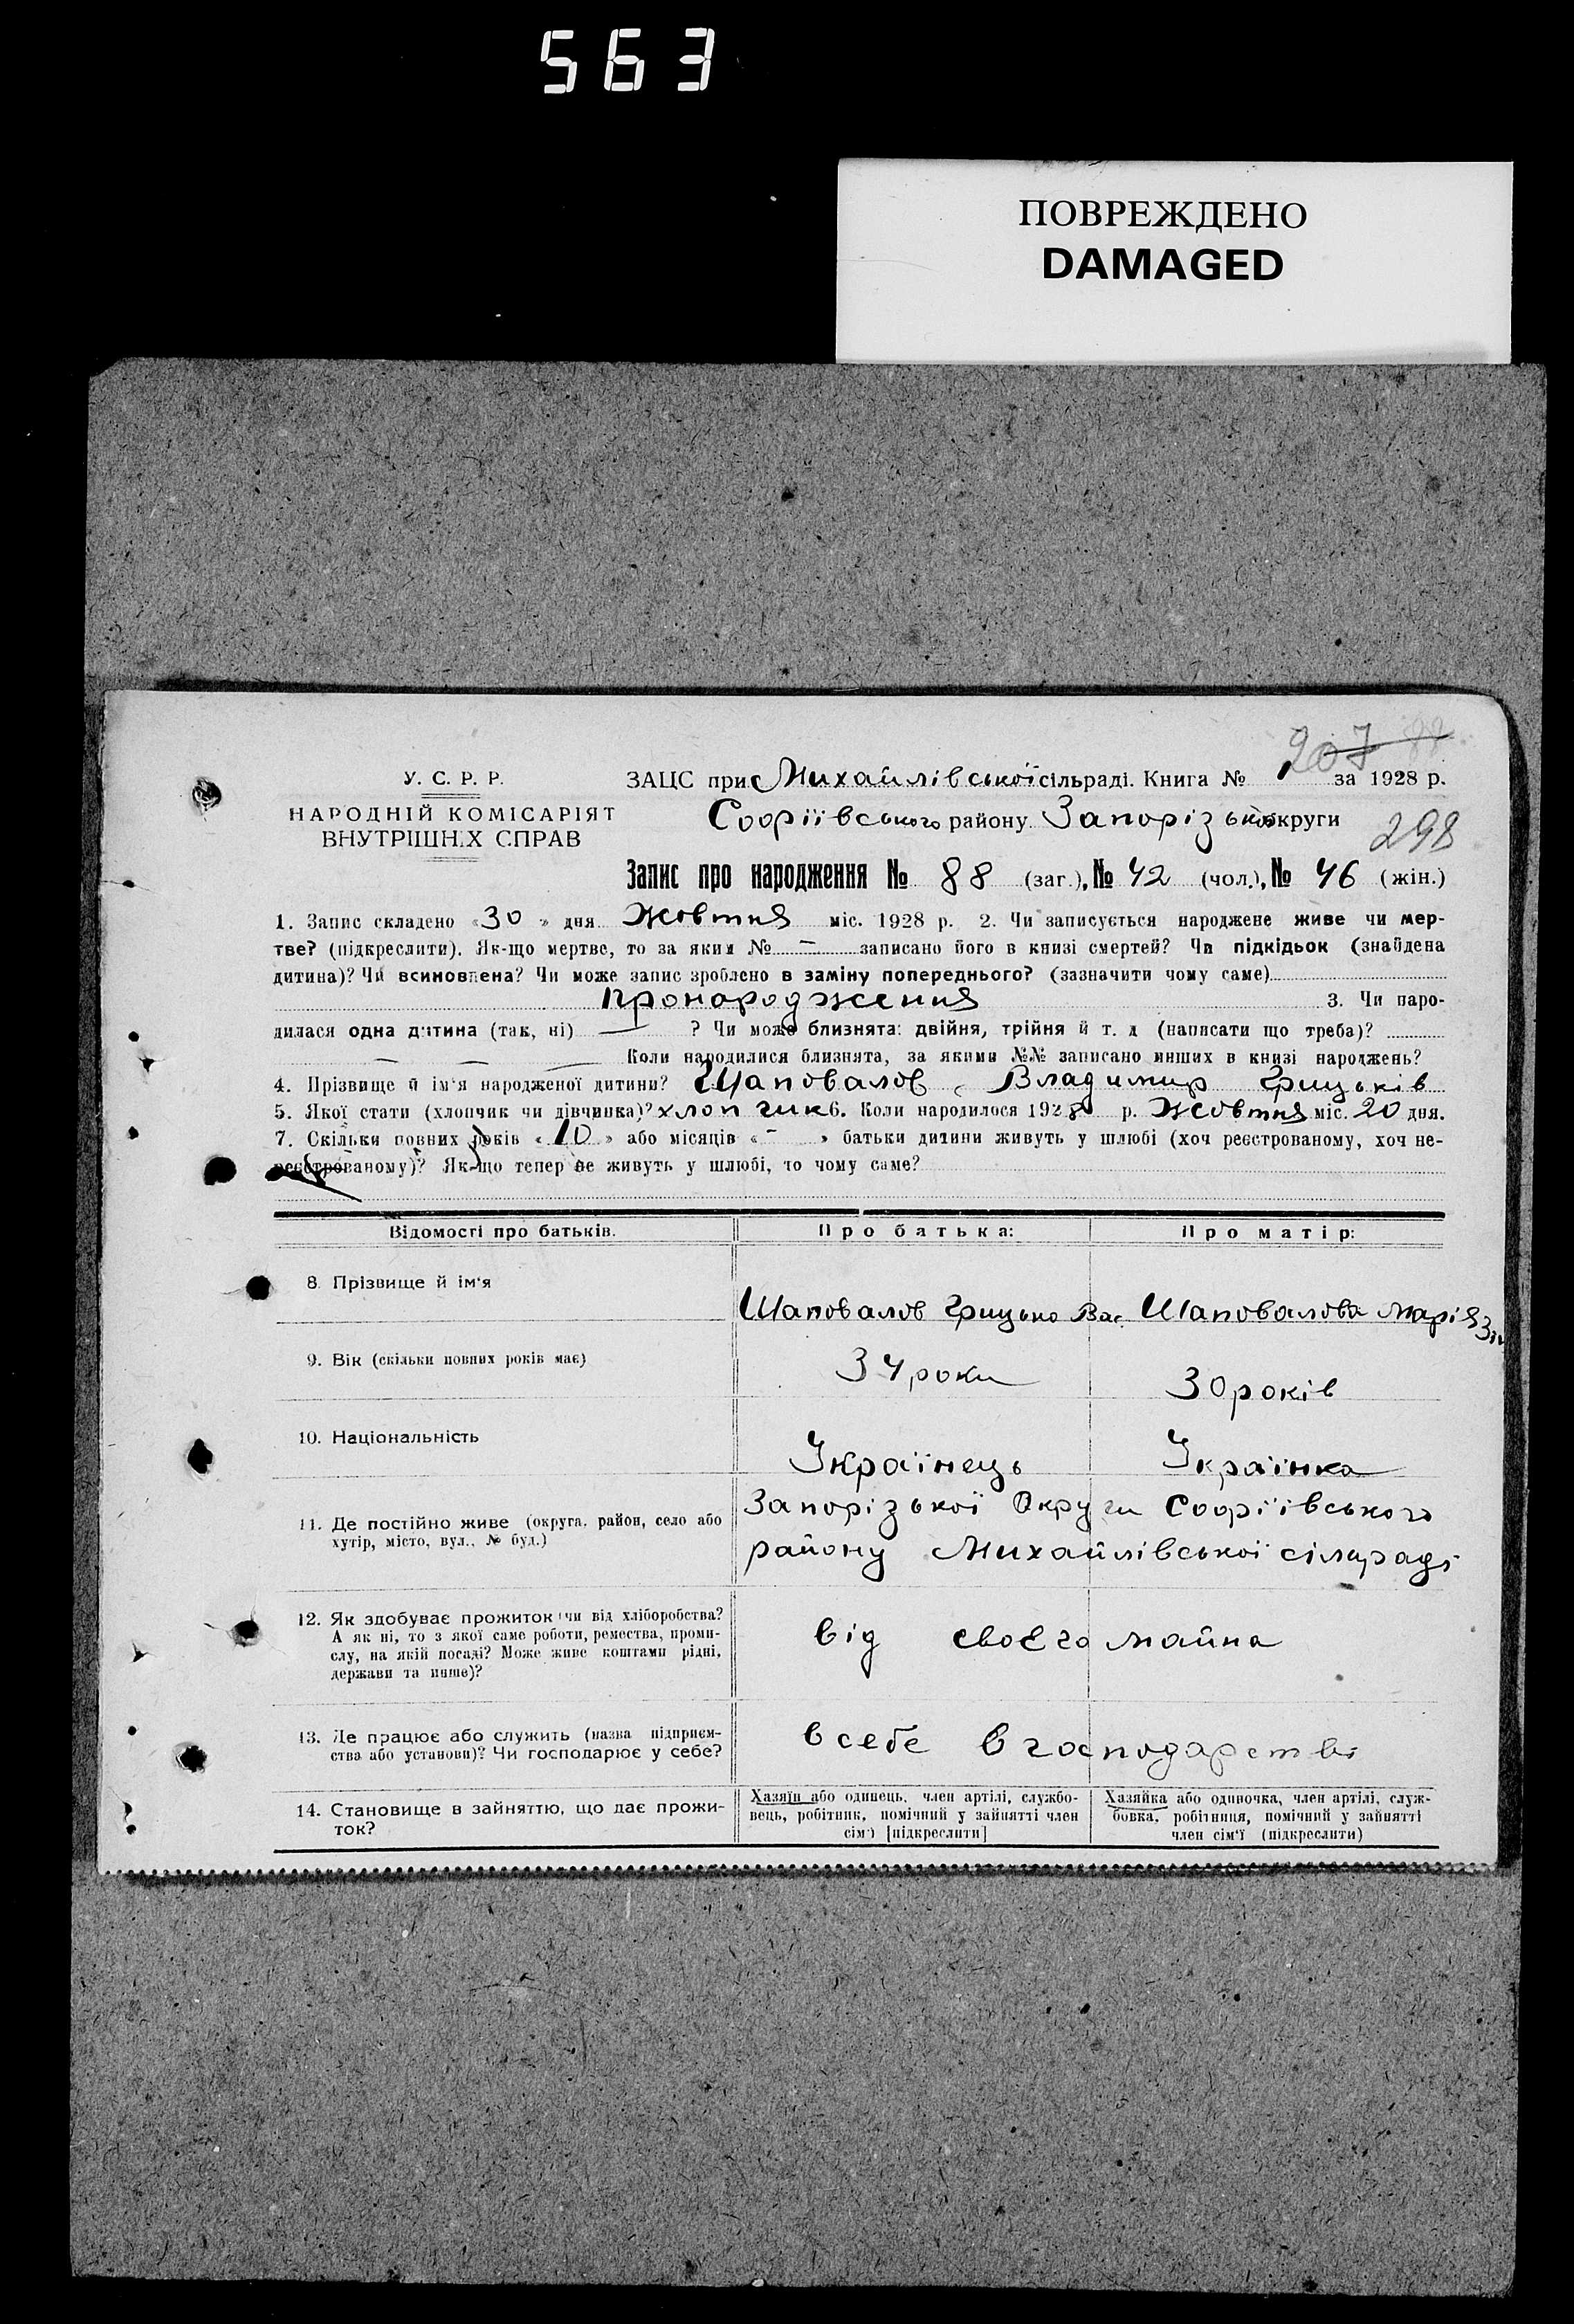 563
ПОВРЕЖДЕНО
DAMAGED
207 88
У. С. Р. Р.
НАРОДНІЙ КОМІСАРІЯТ
ВНУТРІШНІХ СПРАВ
ЗАЦС при Михайлівської сільраді. Книга № 1 за 1928 р.
Софіївського району Запорізької округи
298
Запис про народження № 88 (заг.), № 42 (чол.), № 46 (жін.)
1. Запис складено «30» дня Жовтня міс. 1928 р. 2. Чи записується народжене живе чи мер-
тве? (підкреслити). Як-що мертве, то за яким № — записано його в книзі смертей? Чи підкідьок (знайдена
дитина)? Чи всиновлена? Чи може запис зроблено в заміну попереднього? (зазначити чому саме)
пронародження 3. Чи наро-
дилася одна дитина (так, ні) — ? Чи може близнята: двійня, трійня й т. д (написати що треба)?
— — — Коли народилися близнята, за якими №№ записано инших в книзі народжень?
4. Прізвище й ім'я народженої дитини? Шаповалов Владимир Грицьків
5. Якої стати (хлопчик чи дівчинка)? хлопчик 6. Коли народилося 1928 р. Жовтня міс. 20 дня.
7. Скільки повних років «10» або місяців «-» батьки дитини живуть у шлюбі (хоч реєстрованому, хоч не-
реєстрованому)? Як-що тепер не живуть у шлюбі, то чому саме?
Відомості про батьків. Про батька: Про матір:
8. Прізвище й ім'я Шаповалов Грицько Вас. Шаповалова Марія Зін
9. Вік (скільки повних років має) 34 роки 30 років
10. Національність Українець Українка
11. Де постійно живе (округа, район, село або
хутір, місто, вул., № буд.)
Запорізької Округи Софіївського
району Михайлівської сілгради
12. Як здобуває прожиток (чи від хліборобства?
А як ні, то з якої саме роботи, ремества, проми-
слу, на якій посаді? Може живе коштами рідні,
держави та инше)?
від своєго майна
13. Де працює або служить (назва підприєм-
ства або установи)? Чи господарює у себе?
в себе в господарстві
14. Становище в зайняттю, що дає прожи-
ток?
Хазяїн або одинець, член артілі, службо-
вець, робітник, помічний у зайнятті член
сім'ї [підкреслити]
Хазяйка або одиночка, член артілі, служ-
бовка, робітниця, помічний у зайнятті
член сім'ї (підкреслити)